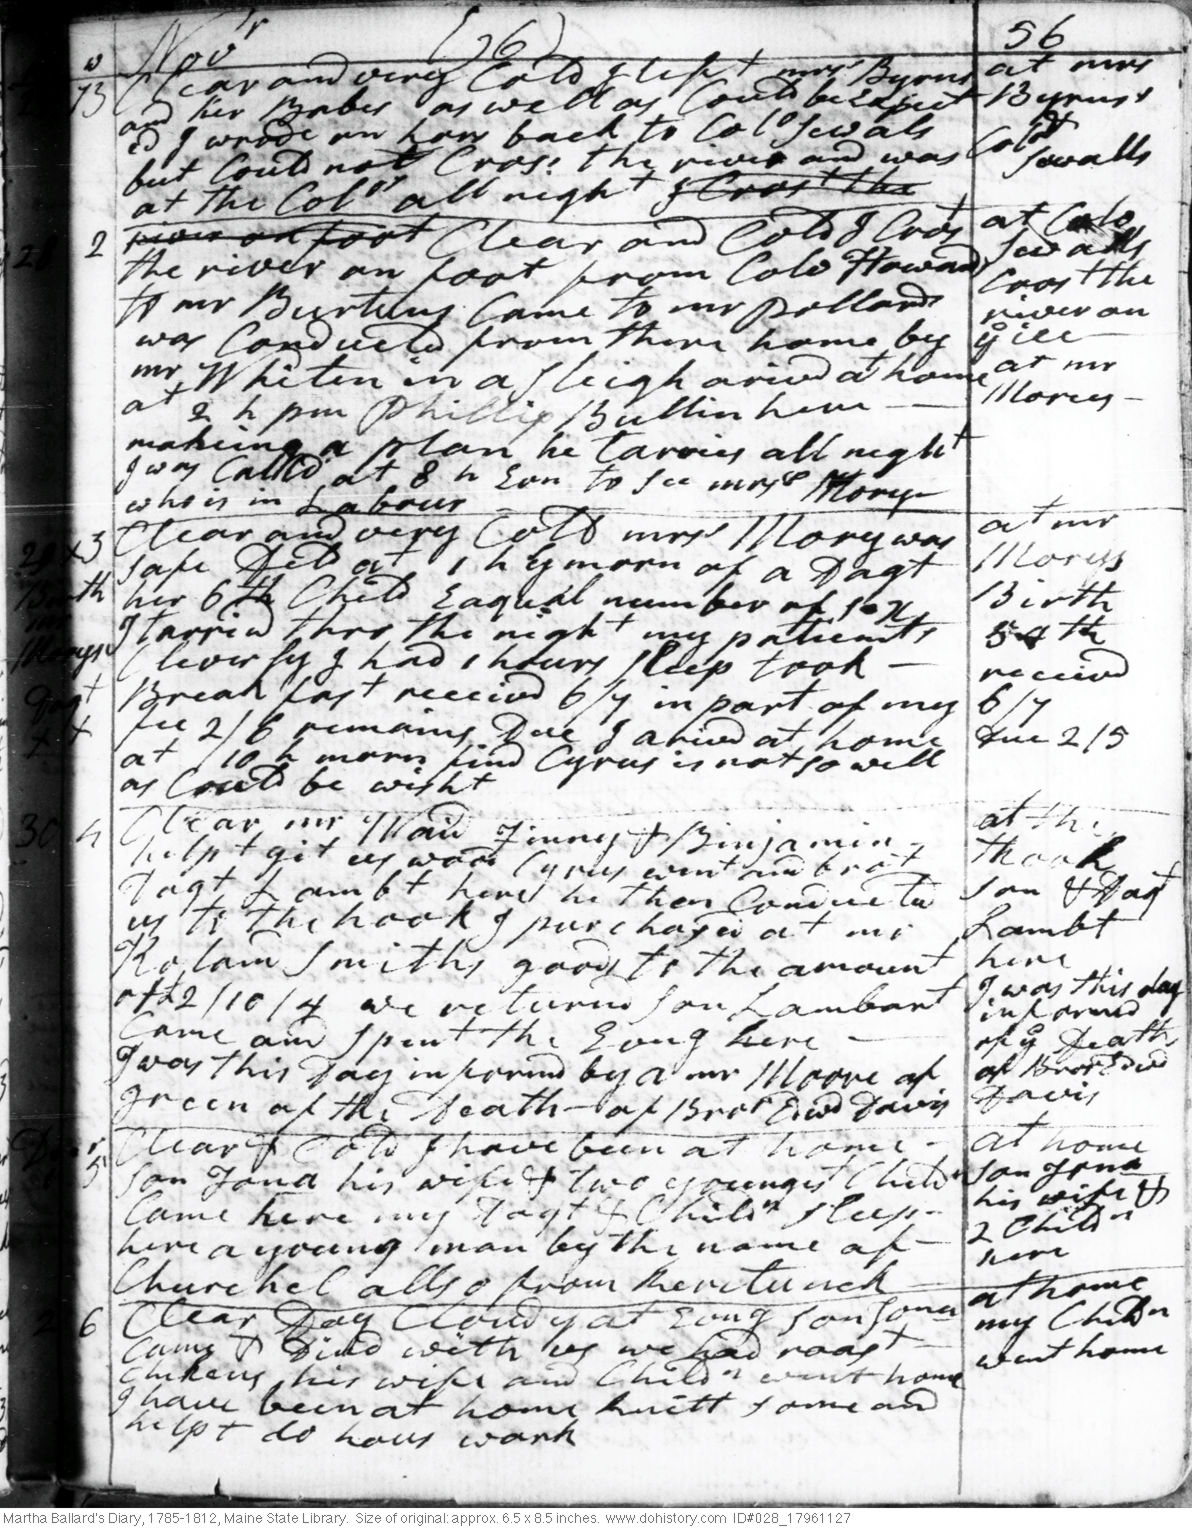 Novr (96) 56
Clear and very Cold I left mrs Byrns at mrs
73 and her Babes as well as Could be Expect Byrns,s
ed I wrode on hors back to Colo Sewals Colo
but Could not Cros: the river and was Sewalls
at the Colos all night I Crost the
river on foot Clear and Cold I Cros at Colo
28 2 the river on foot from Colo Howards Sewalls
to mr Burtuns Came to mr Pollards Crost the
was Conducted from there home by river on
mr Whiten in a Sleigh arivd at home ye ice
at 2 h pm Phillip Bullin here — at mr
makeing a plan he tarries all night Moreys –
I was Calld at 8 h Evn to See mrs Mory
who is in Labour
Clear and very Cold mrs Mory was at mr
29 x 3 safe Deld at 1 h ye morn of a Dagt Moreys
Birth her 6th Child Eaquil number of sex Birth
mr I tarried thro the night my patients 54th
Morys Cleverly I had 1 hours sleep took — received
Dagt Breakfast received 6/7 in part of my 6/7
x x fee 2/5 remains Due I arivd at home Due 2/5
at 10 h morn find Cyrus is not so well
as Could be wisht
30 4 Clear mr Waid Jinny & Binjamin at the
helpt git us wood Cyrus went and brot thook
Dagt Lambt here he then Conducted son & Dagt
us to the hook I purchased at mr Lambt
Kolam Smiths goods to the amount here
of £2/10/4 we returnd son Lambart I was this day
Came and spent the Evng here — informd
I was this Day informd by a mr Moore of of ye Death
Green of the Death of Bror Ewd Davis of Bror Edwd
Davis
Decr Clear & Cold I have been at home – at home
5 son Jona his wife & two youngest Childn son Jona
Came here my Dagt & Childn sleep – his wife &
here a young man by the name of — 2 Childn
here
Churchel allso from
2 6 Clear Day Cloudy at Evng son Jona at home
Came & Dind with us we had roast – my Childn
Chikens his wife and Childn went home went home
I have been at home knitt some and
helpt do hous work
Martha Ballard's Diary, 1785-1812, Maine State Library. Size of original: approx. 6.5 x 8.5 inches. www.dohistory.com ID#028_17961127